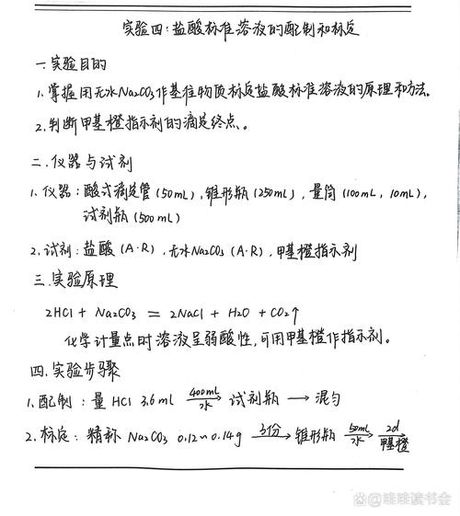 实验四:盐酸标准溶液的配制和标定
一.实验目的
1.掌握用无水Na2CO3作基准物质标定盐酸标准溶液的原理和方法.
2.判断甲基橙指示剂的滴定终点。
二.仪器与试剂
1.仪器:酸式滴定管(50mL),锥形瓶(250mL),量筒(100mL,10mL),
试剂瓶(500mL)
2.试剂:盐酸(A·R),无水Na2CO3(A·R),甲基橙指示剂
三.实验原理
2HCl + Na2CO3 = 2NaCl + H2O + CO2↑
化学计量点时溶液呈弱酸性,可用甲基橙作指示剂。
四.实验步骤
1.配制:量HCl 3.6ml 400ml水→ 试剂瓶 → 混匀
2.标定:精称Na2CO3 0.12~0.14g 3份→ 锥形瓶 50ml水→ 2d甲基橙→
知乎 @唯唯读书会